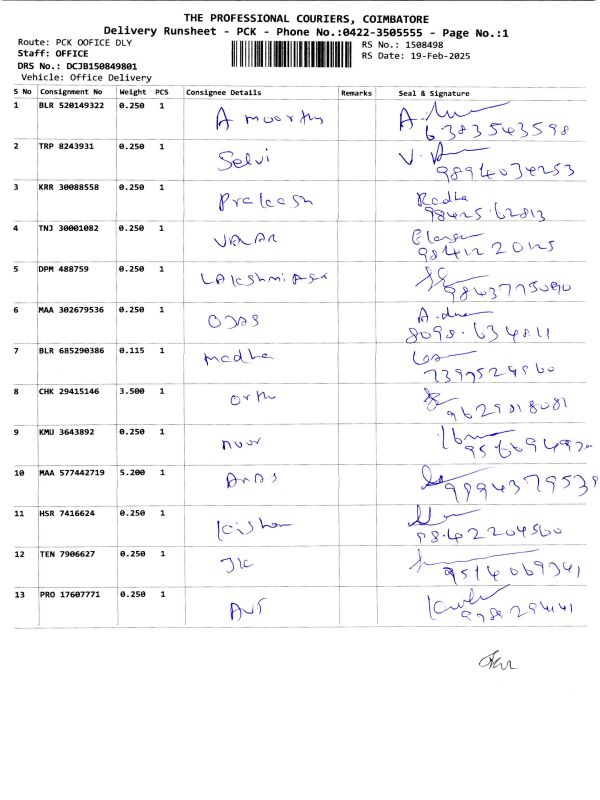 THE PROFESSIONAL COURIERS, COIMBATORE
Delivery Runsheet - PCK - Phone No.:0422-3505555 - Page No.:1
Route: PCK OOFICE DLY
RS No.: 1508498
Staff: OFFICE
RS Date: 19-Feb-2025
DRS No.: DCJB150849801
Vehicle: Office Delivery
S No Consignment No Weight PCS Consignee Details Remarks Seal & Signature
1 BLR 520149322 0.250 1 A moorthy
6383543598
2 TRP 8243931 0.250 1 Selvi
9894034253
3 KRR 30088558 0.250 1 Prakash Radha
98425 62813
4 TNJ 30001082 0.250 1
98412 20125
5 DPM 488759 0.250 1
6 MAA 302679536 0.250 1 OJAS
8098 634811
7 BLR 685290386 0.115 1 medha
8 CHK 29415146 3.500 1
9629818081
9 KMU 3643892 0.250 1 noor
10 MAA 577442719 5.200 1
11 HSR 7416624 0.250 1
12 TEN 7906627 0.250 1 JK
9514069341
13 PRO 17607771 0.250 1